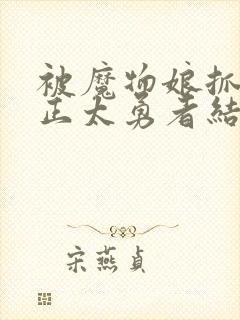 被魔物娘抓
正太勇者结
宋燕贞